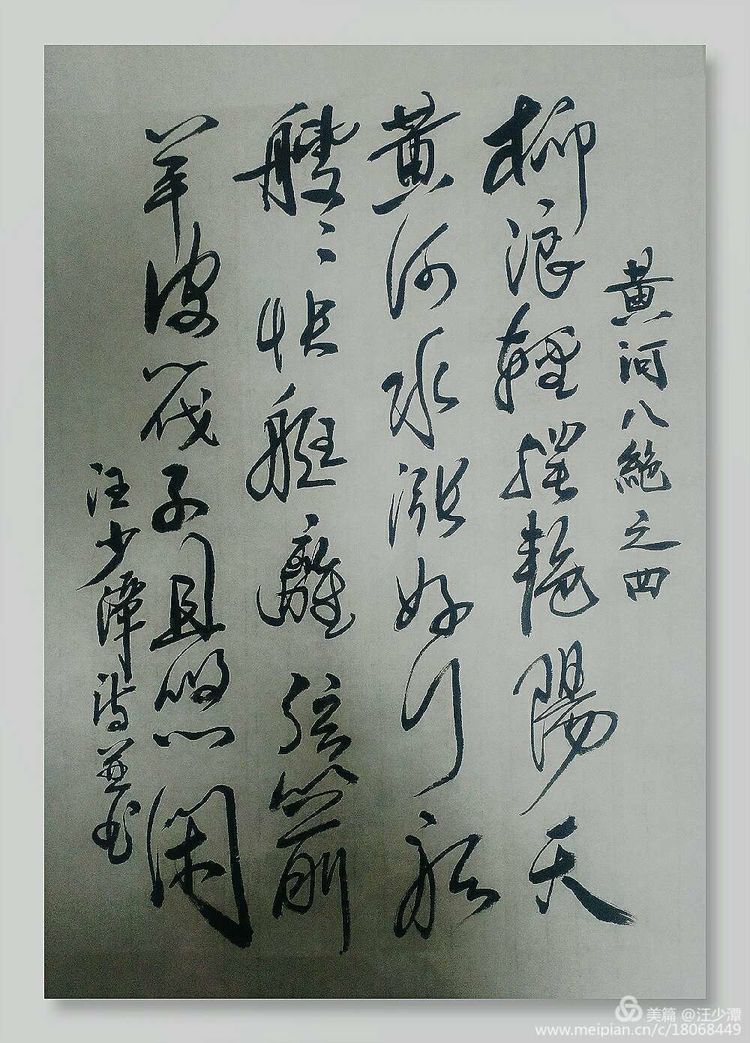 黄河八絶之四
柳浪輕摇艳陽天
黄河水漲好行船
艘〻快艇離弦箭
羊皮筏子且悠闲
汪少潭詩並书
美篇 @汪少潭
www.meipian.cn/c/18068449